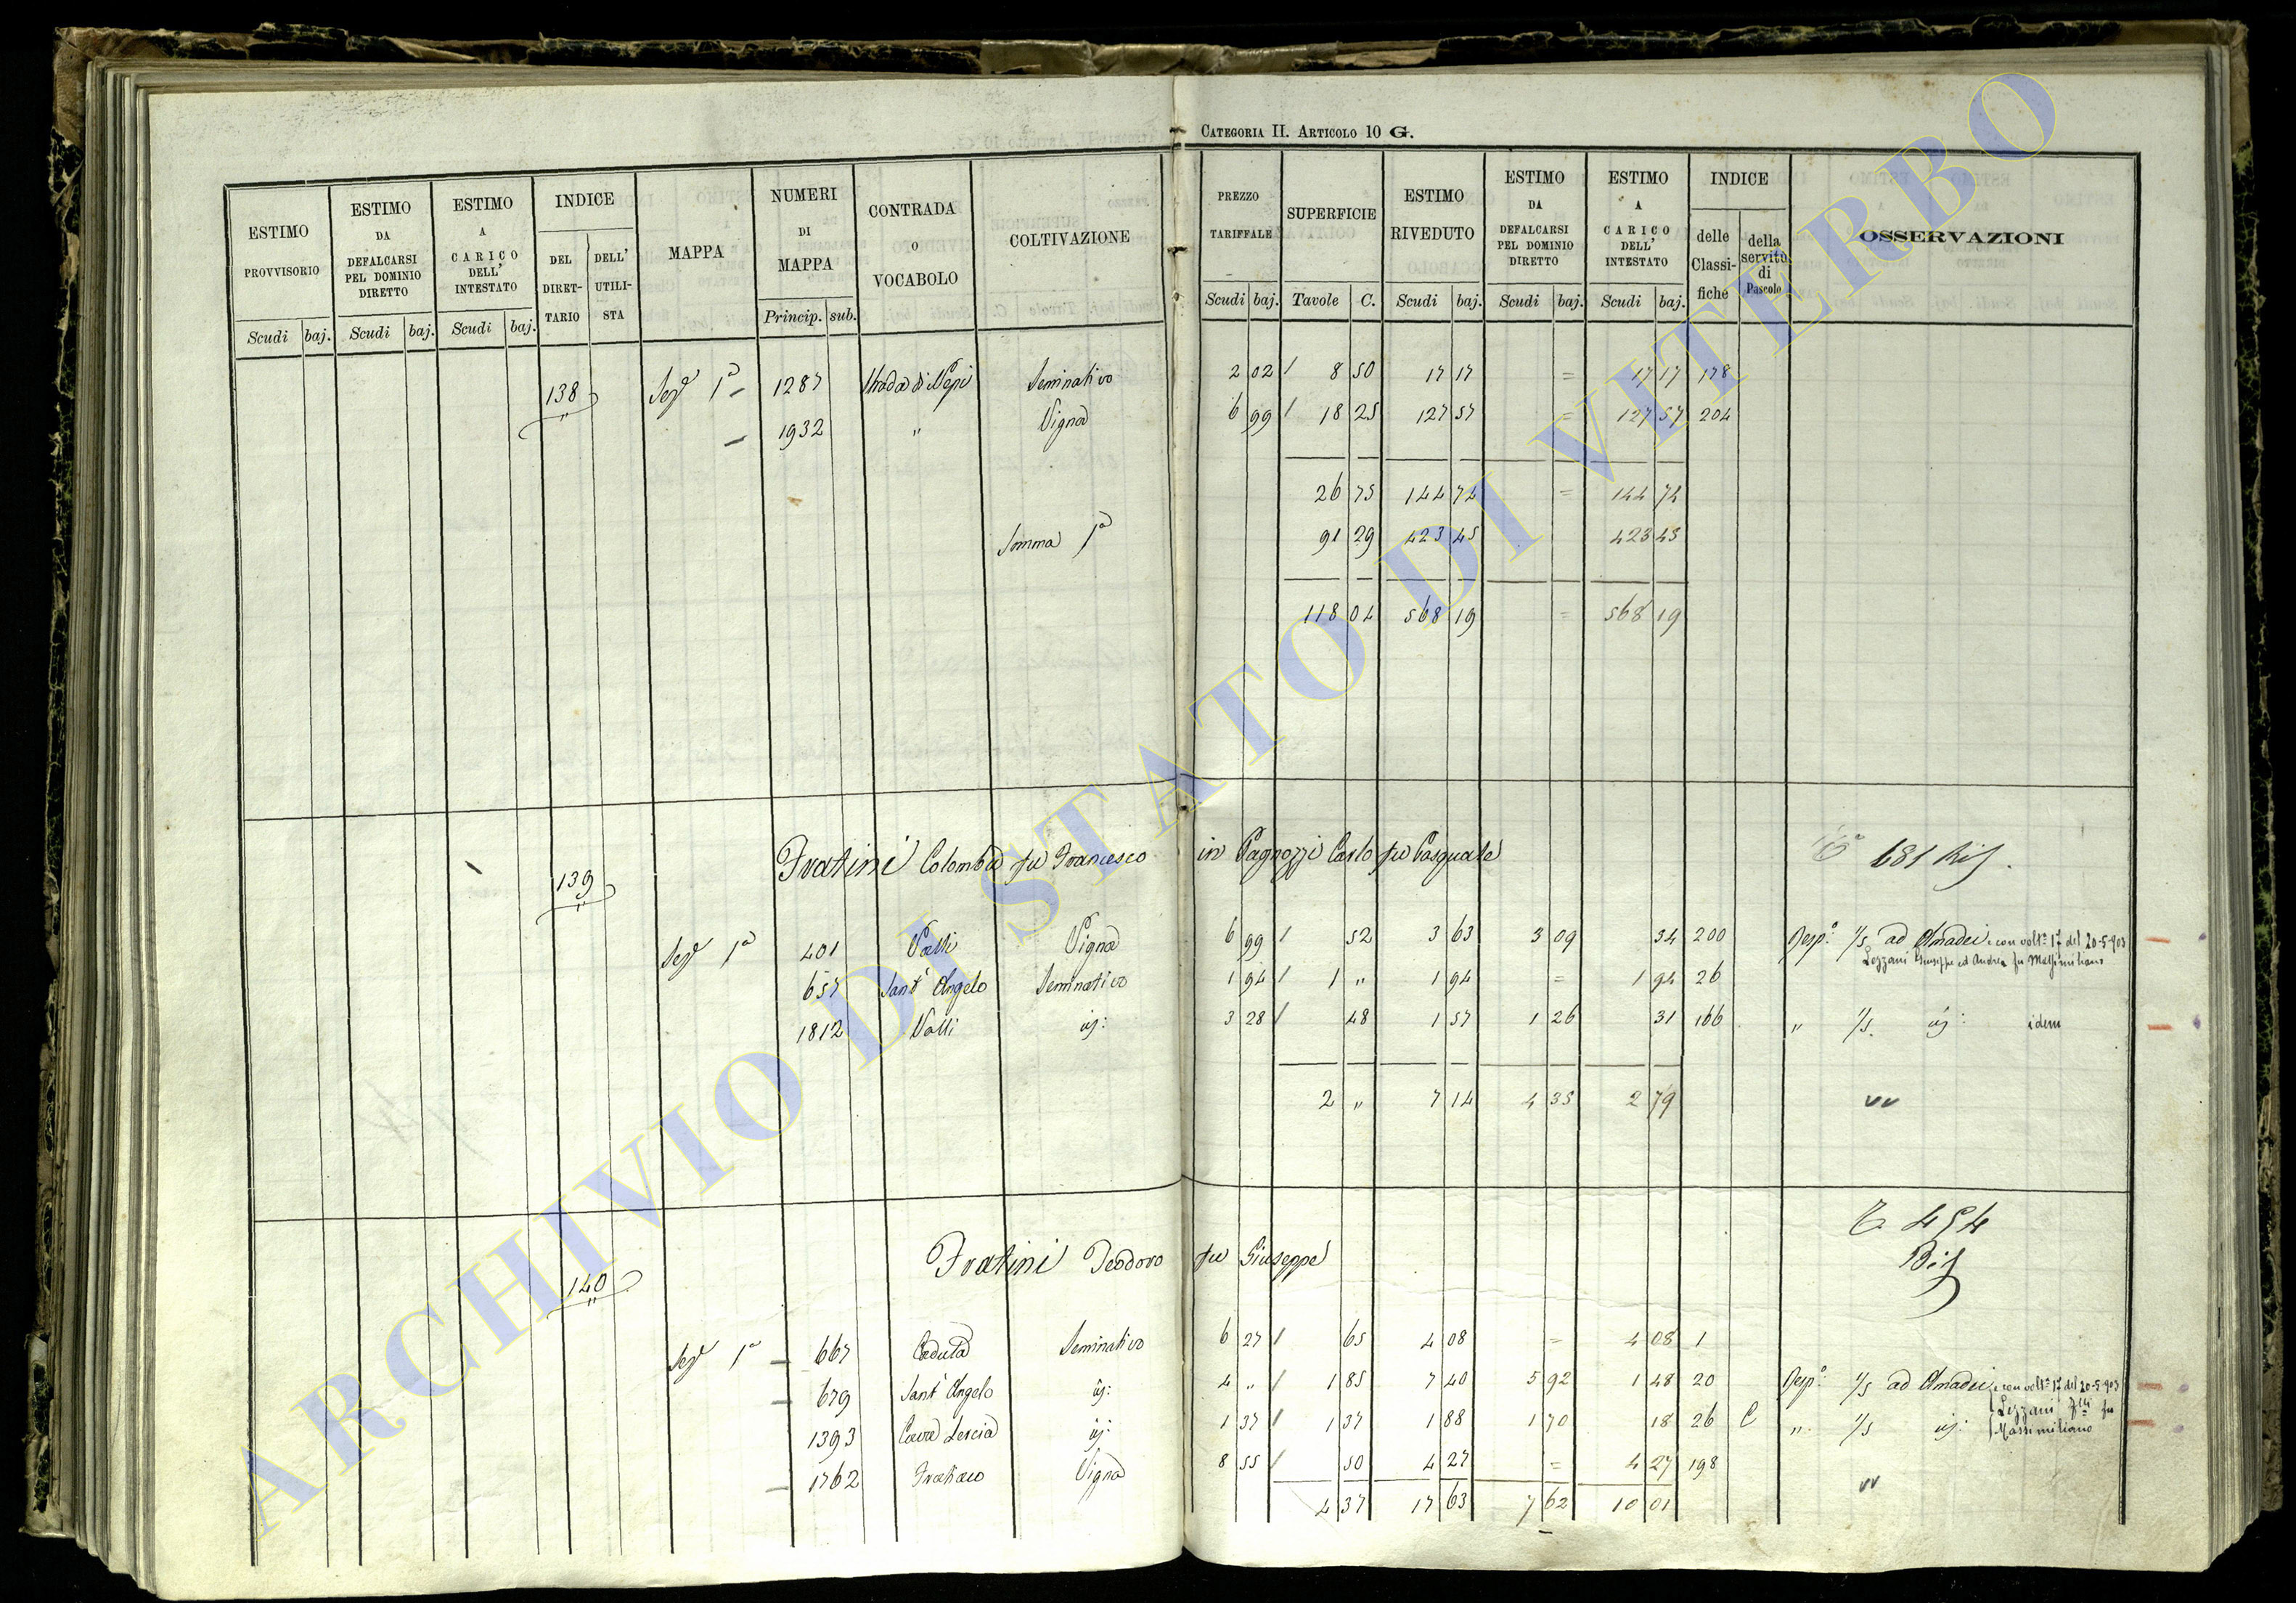 CATEGORIA II. ARTICOLO 10 G.
ESTIMO PROVVISORIO Scudi baj.
ESTIMO DA DEFALCARSI PEL DOMINIO DIRETTO Scudi baj.
ESTIMO A CARICO DELL' INTESTATO Scudi baj.
INDICE DEL DIRETTARIO DELL' UTILISTA
MAPPA
NUMERI DI MAPPA Princip. sub.
CONTRADA O VOCABOLO
COLTIVAZIONE
PREZZO TARIFFALE Scudi baj.
SUPERFICIE Tavole C.
ESTIMO RIVEDUTO Scudi baj.
ESTIMO DA DEFALCARSI PEL DOMINIO DIRETTO Scudi baj.
ESTIMO A CARICO DELL' INTESTATO Scudi baj.
INDICE delle Classifiche della servitù di Pascolo
OSSERVAZIONI
138 Sez 1a 1287 Strada di Nepi Seminativo 2 02 / 8 50 17 17 = 17 17 178
1932 " Vigna 6 99 / 18 25 127 57 = 127 57 204
26 75 144 74 = 144 74
Somma 1a 91 29 423 45 423 45
118 04 568 19 = 568 19
139 Fratini Colomba fu Francesco in Pagnozzi Carlo fu Pasquale 681 Bis.
Sez 1a 401 Valli Vigna 6 99 / 52 3 63 3 09 34 200 Resp: 1/5 ad Amadei e con volt. 17 del 20-5-903
Lezzani Giuseppe ed Andrea fu Massimiliano
657 Sant' Angelo Seminativo 1 94 / 1 " 1 94 = 1 94 26
1812 Valli id: 3 28 / 48 1 57 1 26 31 166 " 1/5. id: idem
2 " 7 14 4 35 2 79
140 Fratini Teodoro fu Giuseppe 454
Bis
Sez 1a 667 Caduta Seminativo 6 27 / 65 4 08 = 4 08 1
679 Sant' Angelo id: 4 " / 1 85 7 40 5 92 1 48 20 Resp: 1/5 ad Amadei e con volt. 17 del 20-5-903
Lezzani flli fu
1393 Cava id: 1 37 / 1 37 1 88 1 70 18 26 C " 1/5 id: Massimiliano
1762 Vigna 8 55 / 50 4 27 = 4 27 198
4 37 17 63 7 62 10 01
ARCHIVIO DI STATO DI VITERBO